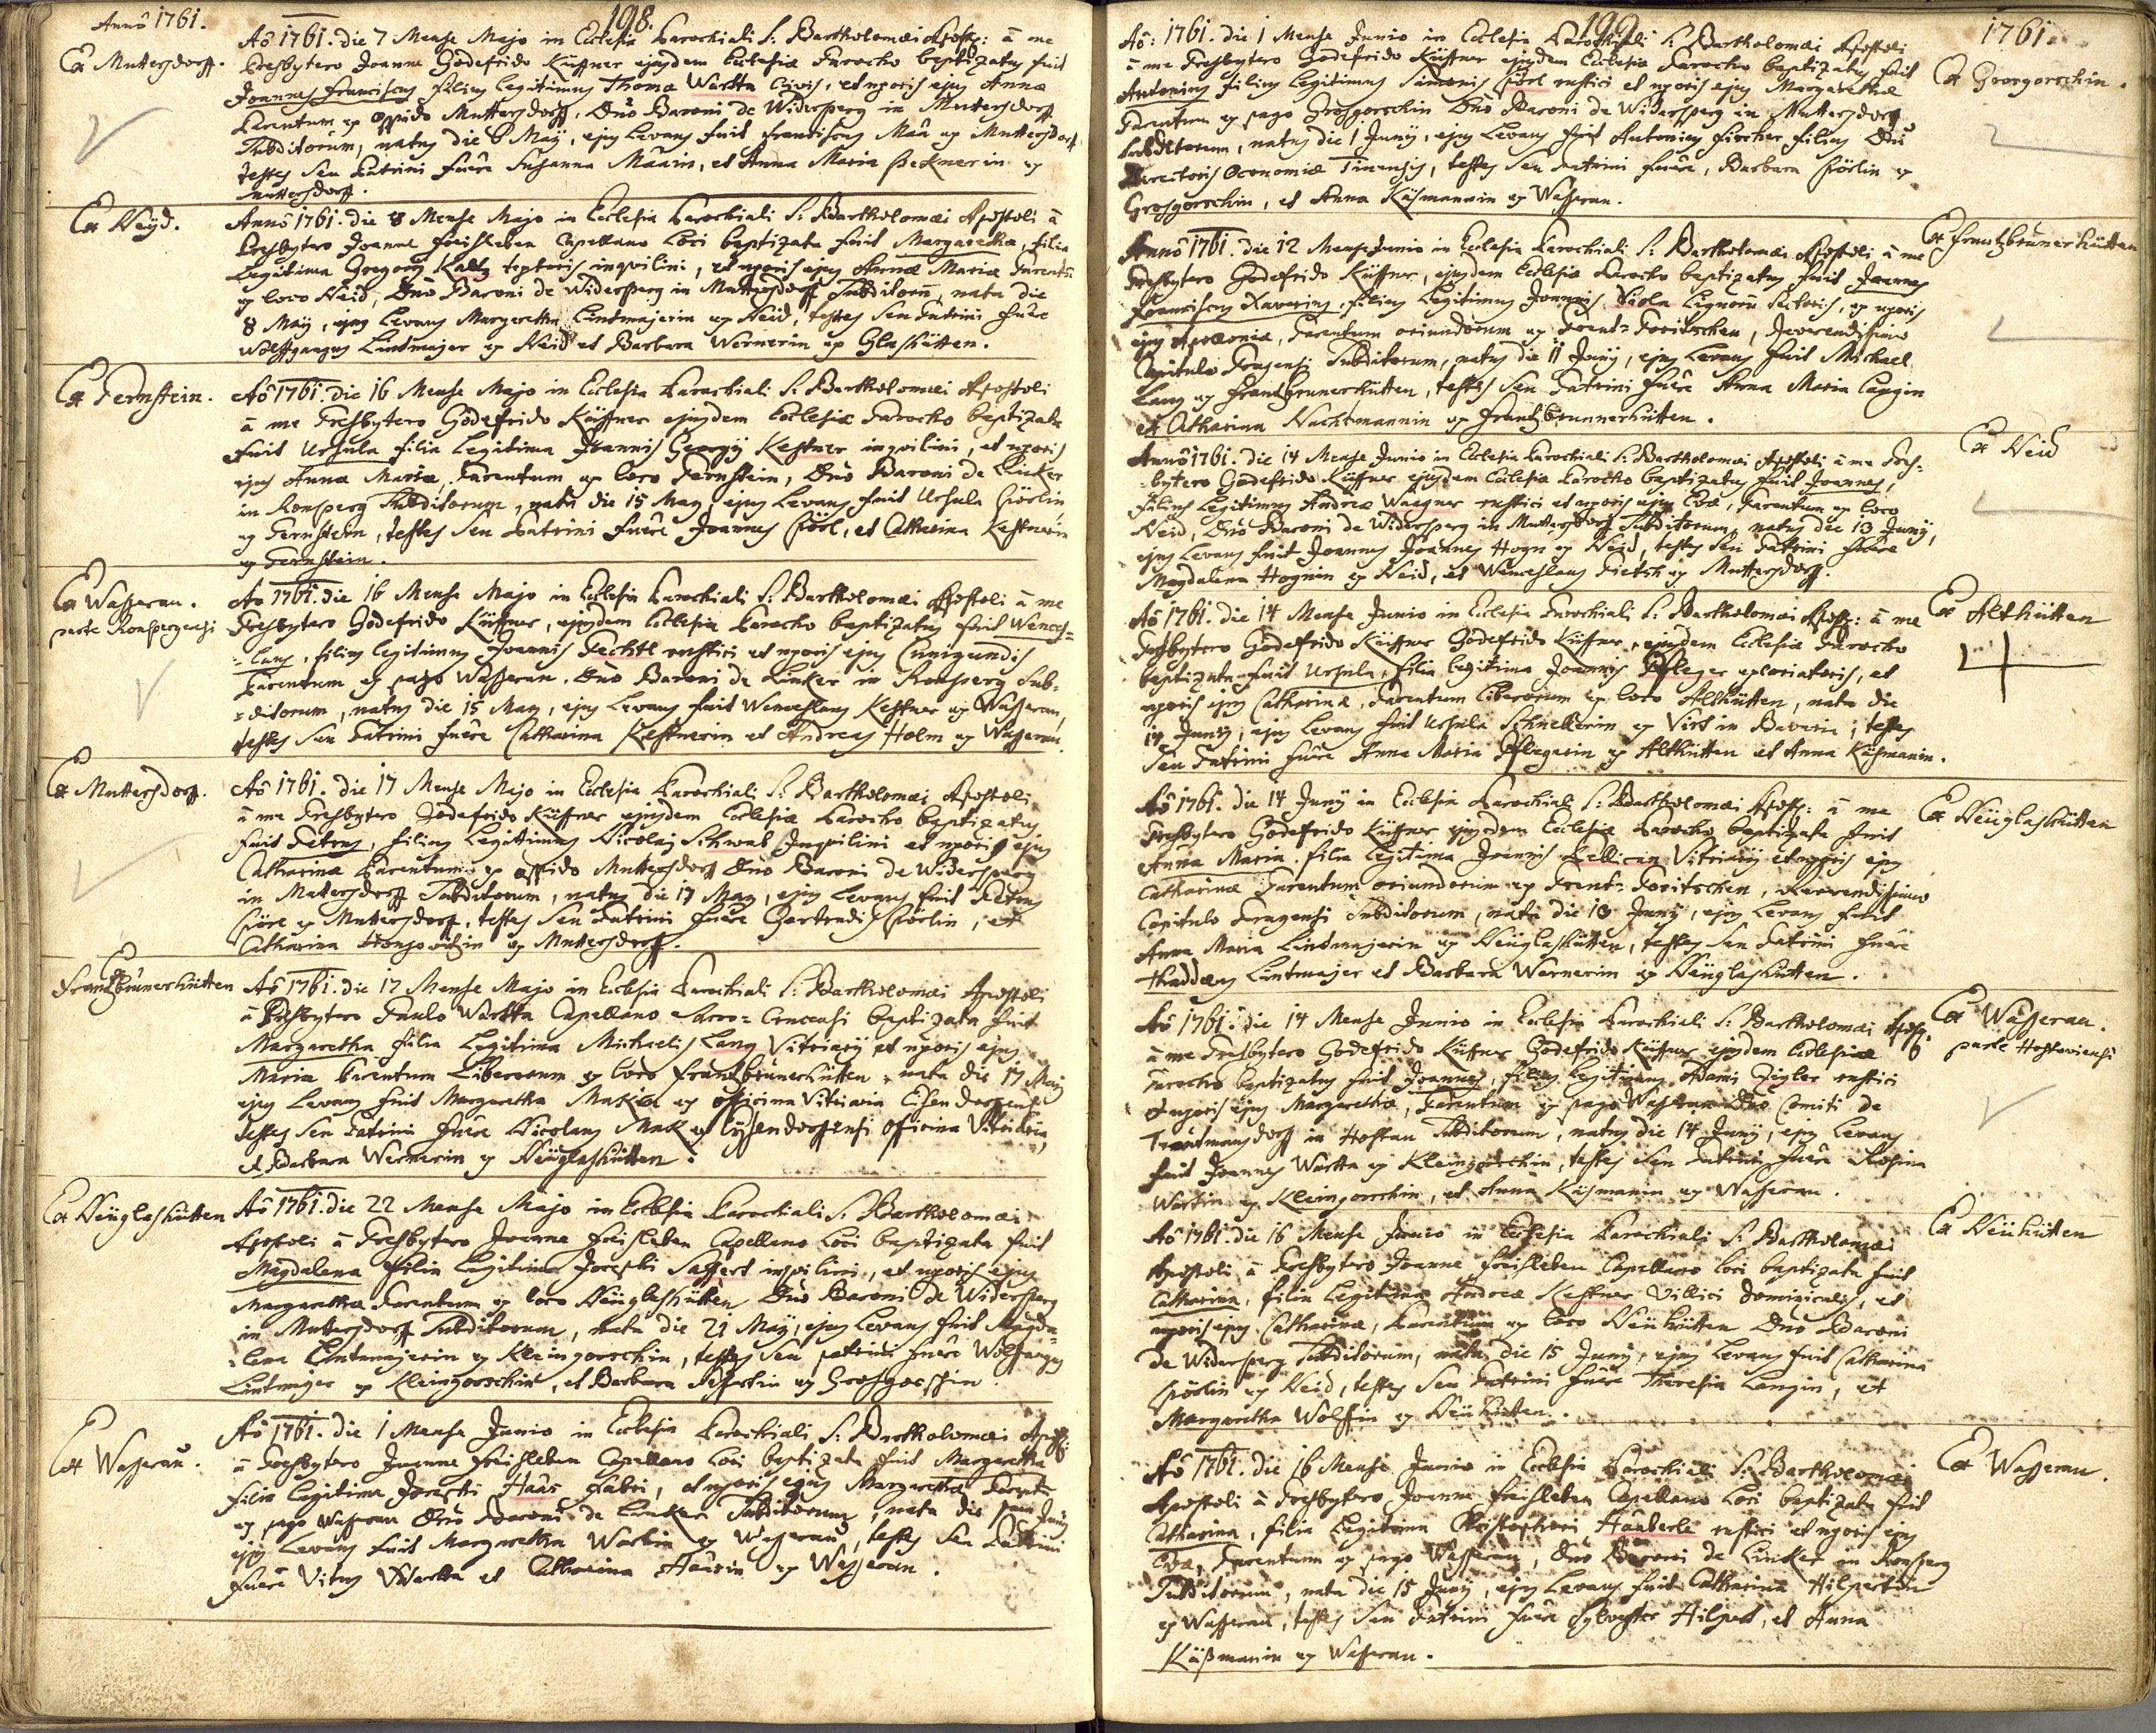 Annô 1761.
198.
Ex Muttersdorff.
Aô 1761. die 7 Mense Majo in Ecclesia Parochiali S: Bartholomæi Apost: â me
Presbytero Joanne Godefrido Küffner ejusdem Ecclesiæ Parocho baptizatus fuit
Joannes Franciscus filius legitimus Thomæ Wartha Civis, et uxoris ejus Annæ
Parentum ex oppido Muttersdorff, Dnô Baroni de Widersperg in Muttersdorff
Subditorum, natus die 6 Maÿ, ejus Levans fuit Franciscus ex Muttersdorff
testes seu Patrini fuêre Susanna et Anna Maria ex
Muttersdorff.
Ex Neÿd.
Annô 1761. die 8 Mense Majo in Ecclesia Parochiali S: Bartholomæi Apostoli â
Presbytero Joanne Freisleben Capellano Loci baptizata fuit Margaretha, filia
Legitima Gregorÿ Kaltz textoris inquilini, et uxoris ejus Annæ Mariæ Parentũ
ex loco Neid, Dnô Baroni de Widersperg in Muttersdorff Subditorũ, nata die
8 Maÿ, ejus Levans Margaretha Lindmajerin ex Neid, testes seu Patrini fuêre
Wolffgangus Lindmajer ex Neid et Barbara Wernerin ex Glashütten.
Ex Fernstein.
Aô 1761. die 16 Mense Majo in Ecclesia Parochiali S: Bartholomæi Apostoli
â me Presbytero Godefrido Küffner ejusdem Ecclesiæ Parocho baptizata
fuit Ursula filia Legitima Joannis Georgÿ Kestner inquilini, et uxoris
ejus Annæ Mariæ, Parentum ex loco Fernstein, Dnô Baroni de Linker
in Ronsperg Subditorum, nata die 15 May, ejus Levans fuit Ursula Pförlin
ex Fernstein, testes seu Patrini fuêre Joannes Pförl, et Catharina Kestnerin
ex Fernstein.
Ex Wasserau.
parte Ronspergensi
Aô 1761. die 16 Mense Majo in Ecclesia Parochiali S: Bartholomæi Apostoli â me
Presbytero Godefrido Küffner, ejusdem Ecclesiæ Parocho baptizatus fuit Wences=
=laus, filius legitimus Joannis Fechtl rustici et uxoris ejus Cunigundis
Parentum ex pago Wasserau, Dnô Baroni de Linker in Ronsperg Sub=
=ditorum, natus die 15 May, ejus Levans fuit Wenceslaus Kestner ex Wasserau,
testes seu Patrini fuêre Catharina Kestnerin et Andreas Holm ex Wasserau.
Ex Muttersdorff.
Aô 1761. die 17 Mense Majo in Ecclesia Parochiali S: Bartholomæi Apostoli
â me Presbytero Godefrido Küffner ejusdem Ecclesiæ Parocho baptizatus
fuit Petrus, filius Legitimus Nicolai Schwab Inquilini et uxoris ejus
Catharinæ Parentum ex oppido Muttersdorff Dnô Baroni de Widersperg
in Muttersdorff Subditorum, natus die 17 May, ejus Levans fuit Petrus
Pförl ex Muttersdorff, testes seu Patrini fuêre Gertrudis Pförlin, et
Catharina ex Muttersdorff.
Ex
Frantzbrunerhütten
Aô 1761. die 17 Mense Majo in Ecclesia Parochiali S: Bartholomæi Apostoli
â Presbytero Paulo Wartha Capellano Sacro=Crucensi baptizata fuit
Margaretha filia Legitima Michaelis Lang Vitriarÿ et uxoris ejus
Mariæ Parentum Liberorum ex loco Frantzbrunerhütten, nata die 17 Maÿ
ejus Levans fuit Margaretha ex officina Vitriaria
testes seu Patrini fuêre Nicolaus Mak ex officina Vitriaria,
et Barbara Wernerin ex Neüglashütten.
Ex Neüglashütten
Aô 1761. die 22 Mense Majo in Ecclesia Parochiali S: Bartholomæi
Apostoli â Presbytero Joanne Freisleben Capellano Loci baptizata fuit
Magdalena filia Legitima Josephi Saffert inquilini, et uxoris ejus
Margarethæ Parentum ex loco Neüglashütten Dnô Baroni de Widersperg
in Muttersdorff Subditorum, nata die 21 Maÿ, ejus Levans fuit Magda=
=lena Lindmajerin ex Kleingorschin, testes seu patrini fuêre Wolffgangus
Lindmajer ex Kleingorschin, et Barbara ex Grosgorschin.
Ex Wasserau.
Aô 1761. die 1 Mense Junio in Ecclesia Parochiali S: Bartholomæi Apost:
â Presbytero Joanne Freisleben Capellano Loci baptizata fuit Margaretha
filia Legitima Josephi Haas fabri, et uxoris ejus Margarethæ Parentũ
ex pago Wasserau Dnô Baroni de Linker Subditorum, nata die Junÿ
ejus Levans fuit Margaretha Wartin ex Wasserau, testes seu Patrini
fuêre Vitus Wartha et Catharina Haasin ex Wasserau.
199
1761.
Ex Grosgorschin.
Aô: 1761. die 1 Mense Junio in Ecclesia Parochiali S: Bartholomæi Apostoli
â me Presbytero Godefrido Küffner ejusdem Ecclesiæ Parocho baptizatus fuit
Antonius filius Legitimus Simonis Pförl rustici et uxoris ejus Margarethæ
Parentum ex pago Grosgorschin Dnô Baroni de Widersperg in Muttersdorff
Subditorum, natus die 1 Junÿ, ejus Levans fuit Antonius Fischer filius Dnĩ
Directoris Oeconomiæ, testes seu Patrini fuêre, Barbara Pförlin ex
Grosgorschin, et Anna Käsmannin ex Wasserau.
Ex Frantzbrunerhütten
Annô 1761. die 12 Mense Junio in Ecclesia Parochiali S: Bartholomæi Apostoli â me
Presbytero Godefrido Küffner, ejusdem Ecclesiæ Parocho baptizatus fuit Joannes
Franciscus Xaverius, filius Legitimus Joannis Viola Lignorũ sectoris, et uxoris
ejus Apoloniæ, Parentum oriundorum ex Poritschen, Reverendissimo
Capitulo Pragensi Subditorum, natus die 11 Junÿ, ejus Levans fuit Michael
Lang ex Frantzbrunerhütten, testes seu Patrini fuêre Anna Maria Langin
et Catharina Nachtmannin ex Frantzbrunnerhütten.
Ex Neid
Annô 1761. die 14 Mense Junio in Ecclesia Parochiali S: Bartholomæi Apostoli â me Pres=
=bytero Godefrido Küffner ejusdem Ecclesiæ Parocho baptizatus fuit Joannes,
filius Legitimus Andreæ Waagner rustici et uxoris ejus Evæ, Parentum ex loco
Neid, Dnô Baroni de Widersperg in Muttersdorff Subditorum, natus die 13 Junÿ,
ejus Levans fuit Joannes Joannes Hogn ex Neid, testes seu Patrini fuêre
Magdalena Hognin ex Neid, et Wenceslaus ex Muttersdorff.
Ex Althütten
Aô 1761. die 14 Mense Junio in Ecclesia Parochiali S: Bartholomæi Apost: â me
Presbytero Godefrido Küffner Godefrido Küffner, ejusdem Ecclesiæ Parocho
baptizata fuit Ursula, filia legitima Joannis Pfleger, et
uxoris ejus Catharinæ, Parentum Liberorum ex loco Althütten, nata die
14 Junÿ, ejus Levans fuit Ursula ex in Bavaria; testes
seu Patrini fuêre Anna Maria Pflegerin ex Althütten et Anna Käsmanin.
Ex Neüglashütten
Aô 1761. die 14 Junÿ in Ecclesia Parochiali S: Bartholomæi Apost: â me
Presbytero Godefrido Küffner ejusdem Ecclesiæ Parocho baptizata fuit
Anna Maria filia Legitima Joannis Vitriarÿ et uxoris ejus
Catharinæ Parentum oriundorum ex Poritschen, Reverendissimo
Capitulo Pragensi Subditorum, nata die 13 Junÿ, ejus Levans fuit
Anna Maria Lindmajerin ex Neüglashütten, testes seu Patrini fuêre
Thaddæus Lindmajer et Barbara Wernerin ex Neüglashütten.
Ex Wasserau.
parte Hostoviensi
Aô 1761. die 14 Mense Junio in Ecclesia Parochiali S: Bartholomæi Apost:
â me Presbytero Godefrido Küffner Godefrido Küffner ejusdem Ecclesiæ
Parocho baptizatus fuit Joannes, filius legitimus Adami Zigler rustici
et uxoris ejus Margarethæ, Parentum ex pago Wasserau Dnô Comiti de
Trautmansdorff in Hostau Subditorum, natus die 14 Junÿ, ejus Levans
fuit Joannes Wartha ex Kleingorschin, testes seu Patrini fuêre Rosina
Wartin ex Kleingorschin, et Anna Käsmanin ex Wasserau.
Ex Neühütten
Aô 1761. die 16 Mense Junio in Ecclesia Parochiali S: Bartholomæi
Apostoli â Presbytero Joanne Freisleben Capellano loci baptizata fuit
Catharina, filia Legitima Andreæ Kestner Villici dominicalis, et
uxoris ejus Catharinæ, Parentum ex loco Neühütten Dnô Baroni
de Widersperg Subditorum, nata die 15 Junÿ, ejus Levans fuit Catharina
Pförlin ex Neid, testes seu Patrini fuêre Theresia Langin, et
Margaretha Wolffin ex Neühütten.
Ex Wasserau.
Aô 1761. die 16 Mense Junio in Ecclesia Parochiali S: Bartholomæi
Apostoli â Presbytero Joanne Freisleben Capellano Loci baptizata fuit
Catharina, filia Legitima Christophori Häuberle rustici et uxoris ejus
Evæ, Parentum ex pago Wasserau, Dnô Baroni de Linker in Ronsperg
Subditorum, nata die 15 Junÿ, ejus Levans fuit Catharina Hilpertin
ex Wasserau, testes seu Patrini fuêre Sylvester Hilpert, et Anna
Käßmanin ex Wasserau.